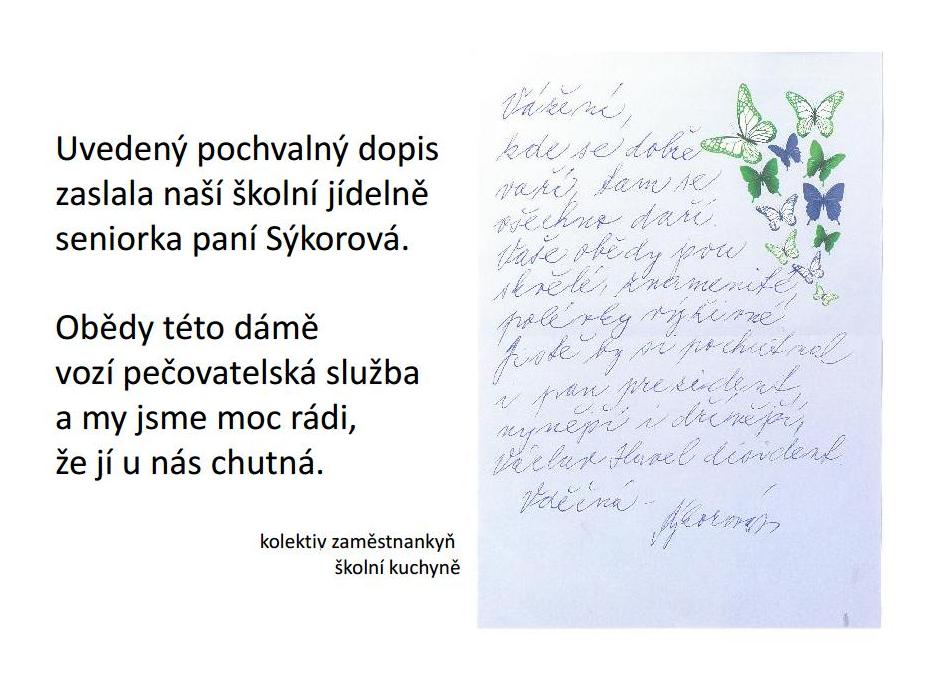 Uvedený pochvalný dopis
zaslala naší školní jídelně
seniorka paní Sýkorová.
Obědy této dámě
vozí pečovatelská služba
a my jsme moc rádi,
že jí u nás chutná.
kolektiv zaměstnankyň
školní kuchyně
Vážení,
kde se dobře
vaří, tam se
všechno daří.
Vaše obědy jsou
skvělé, znamenité
polévky výživné
Jistě by si pochutnal
i pan prezident,
nynější i dřívější,
Václav Havel disident
Vděčná -
Sýkorová